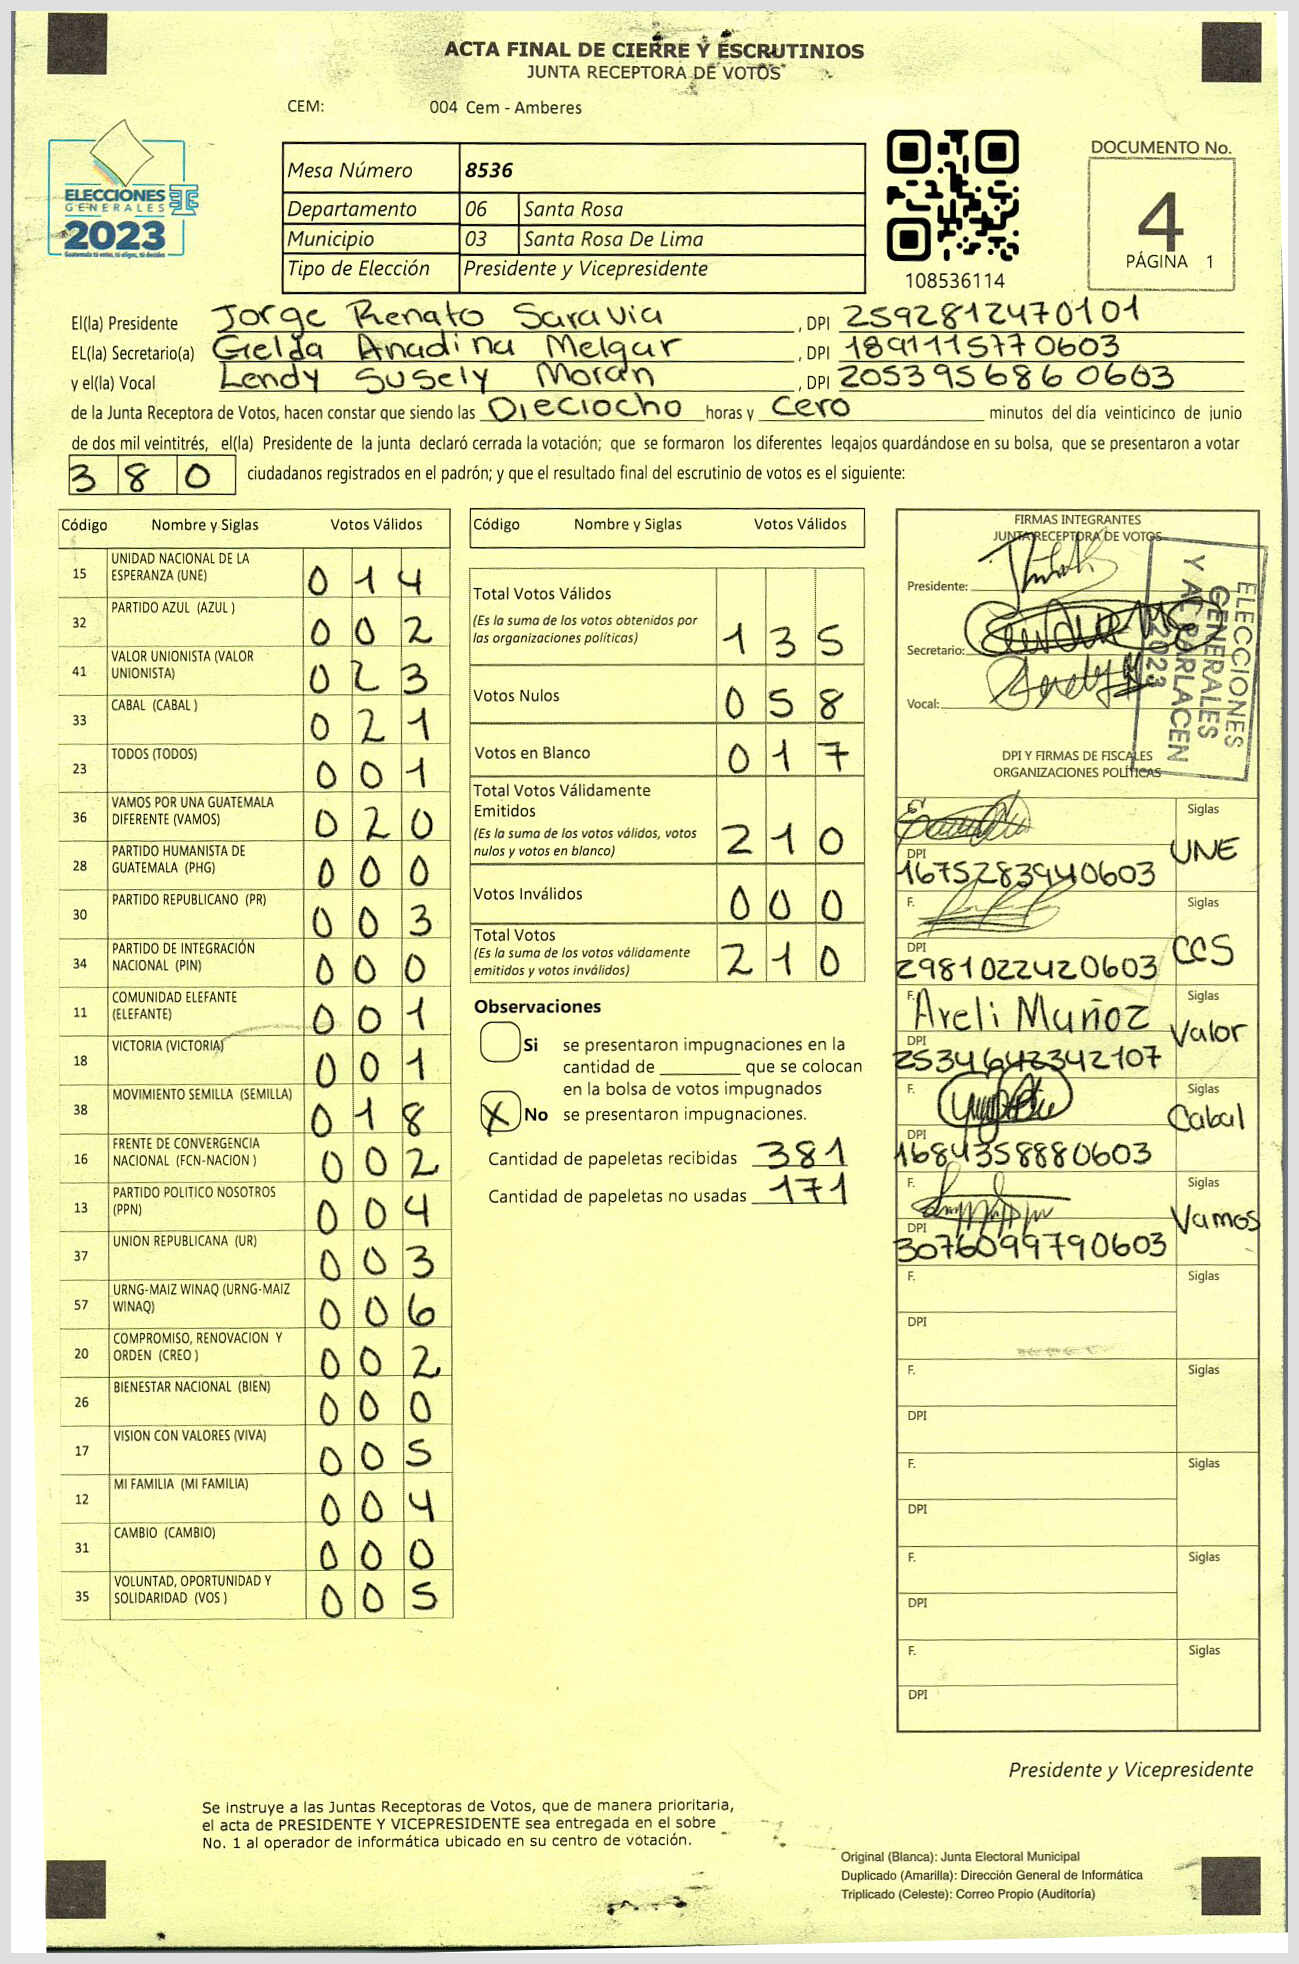 ACTA FINAL DE CIERRE Y ESCRUTINIOS
JUNTA RECEPTORA DE VOTOS
CEM: 004 Cem - Amberes
ELECCIONES
GENERALES
2023
Guatemala tú votas, tú eliges, tú decides
Mesa Número 8536
Departamento 06 Santa Rosa
Municipio 03 Santa Rosa De Lima
Tipo de Elección Presidente y Vicepresidente
108536114
DOCUMENTO No.
4
PÁGINA 1
El(la) Presidente Jorge Renato Saravia , DPI 2592812470101
EL(la) Secretario(a) Gielda Anadina Melgar , DPI 1891115770603
y el(la) Vocal Lendy Susely Moran , DPI 2053956860603
de la Junta Receptora de Votos, hacen constar que siendo las Dieciocho horas y Cero minutos del día veinticinco de junio
de dos mil veintitrés, el(la) Presidente de la junta declaró cerrada la votación; que se formaron los diferentes legajos guardándose en su bolsa, que se presentaron a votar
380 ciudadanos registrados en el padrón; y que el resultado final del escrutinio de votos es el siguiente:
Código Nombre y Siglas Votos Válidos
15 UNIDAD NACIONAL DE LA ESPERANZA (UNE) 014
32 PARTIDO AZUL (AZUL ) 002
41 VALOR UNIONISTA (VALOR UNIONISTA) 023
33 CABAL (CABAL ) 021
23 TODOS (TODOS) 001
36 VAMOS POR UNA GUATEMALA DIFERENTE (VAMOS) 020
28 PARTIDO HUMANISTA DE GUATEMALA (PHG) 000
30 PARTIDO REPUBLICANO (PR) 003
34 PARTIDO DE INTEGRACIÓN NACIONAL (PIN) 000
11 COMUNIDAD ELEFANTE (ELEFANTE) 001
18 VICTORIA (VICTORIA) 001
38 MOVIMIENTO SEMILLA (SEMILLA) 018
16 FRENTE DE CONVERGENCIA NACIONAL (FCN-NACION ) 002
13 PARTIDO POLITICO NOSOTROS (PPN) 004
37 UNION REPUBLICANA (UR) 003
57 URNG-MAIZ WINAQ (URNG-MAIZ WINAQ) 006
20 COMPROMISO, RENOVACION Y ORDEN (CREO ) 002
26 BIENESTAR NACIONAL (BIEN) 000
17 VISION CON VALORES (VIVA) 005
12 MI FAMILIA (MI FAMILIA) 004
31 CAMBIO (CAMBIO) 000
35 VOLUNTAD, OPORTUNIDAD Y SOLIDARIDAD (VOS ) 005
Código Nombre y Siglas Votos Válidos
Total Votos Válidos
(Es la suma de los votos obtenidos por
las organizaciones políticas) 135
Votos Nulos 058
Votos en Blanco 017
Total Votos Válidamente
Emitidos
(Es la suma de los votos válidos, votos
nulos y votos en blanco) 210
Votos Inválidos 000
Total Votos
(Es la suma de los votos válidamente
emitidos y votos inválidos) 210
Observaciones
Si se presentaron impugnaciones en la
cantidad de ________ que se colocan
en la bolsa de votos impugnados
X No se presentaron impugnaciones.
Cantidad de papeletas recibidas 381
Cantidad de papeletas no usadas 171
FIRMAS INTEGRANTES
JUNTA RECEPTORA DE VOTOS
Presidente:
Secretario:
Vocal:
ELECCIONES
GENERALES
Y AL PARLACEN
2023
DPI Y FIRMAS DE FISCALES
ORGANIZACIONES POLÍTICAS
Siglas
UNE
DPI
1675283940603
F. Siglas
CCS
DPI
2981022420603
F. Areli Muñoz Siglas
Valor
DPI
2534642342107
F. Siglas
Cabal
DPI
1684358880603
F. Siglas
Vamos
DPI
3076099790603
F. Siglas
DPI
F. Siglas
DPI
F. Siglas
DPI
F. Siglas
DPI
F. Siglas
DPI
Presidente y Vicepresidente
Se instruye a las Juntas Receptoras de Votos, que de manera prioritaria,
el acta de PRESIDENTE Y VICEPRESIDENTE sea entregada en el sobre
No. 1 al operador de informática ubicado en su centro de votación.
Original (Blanca): Junta Electoral Municipal
Duplicado (Amarilla): Dirección General de Informática
Triplicado (Celeste): Correo Propio (Auditoría)